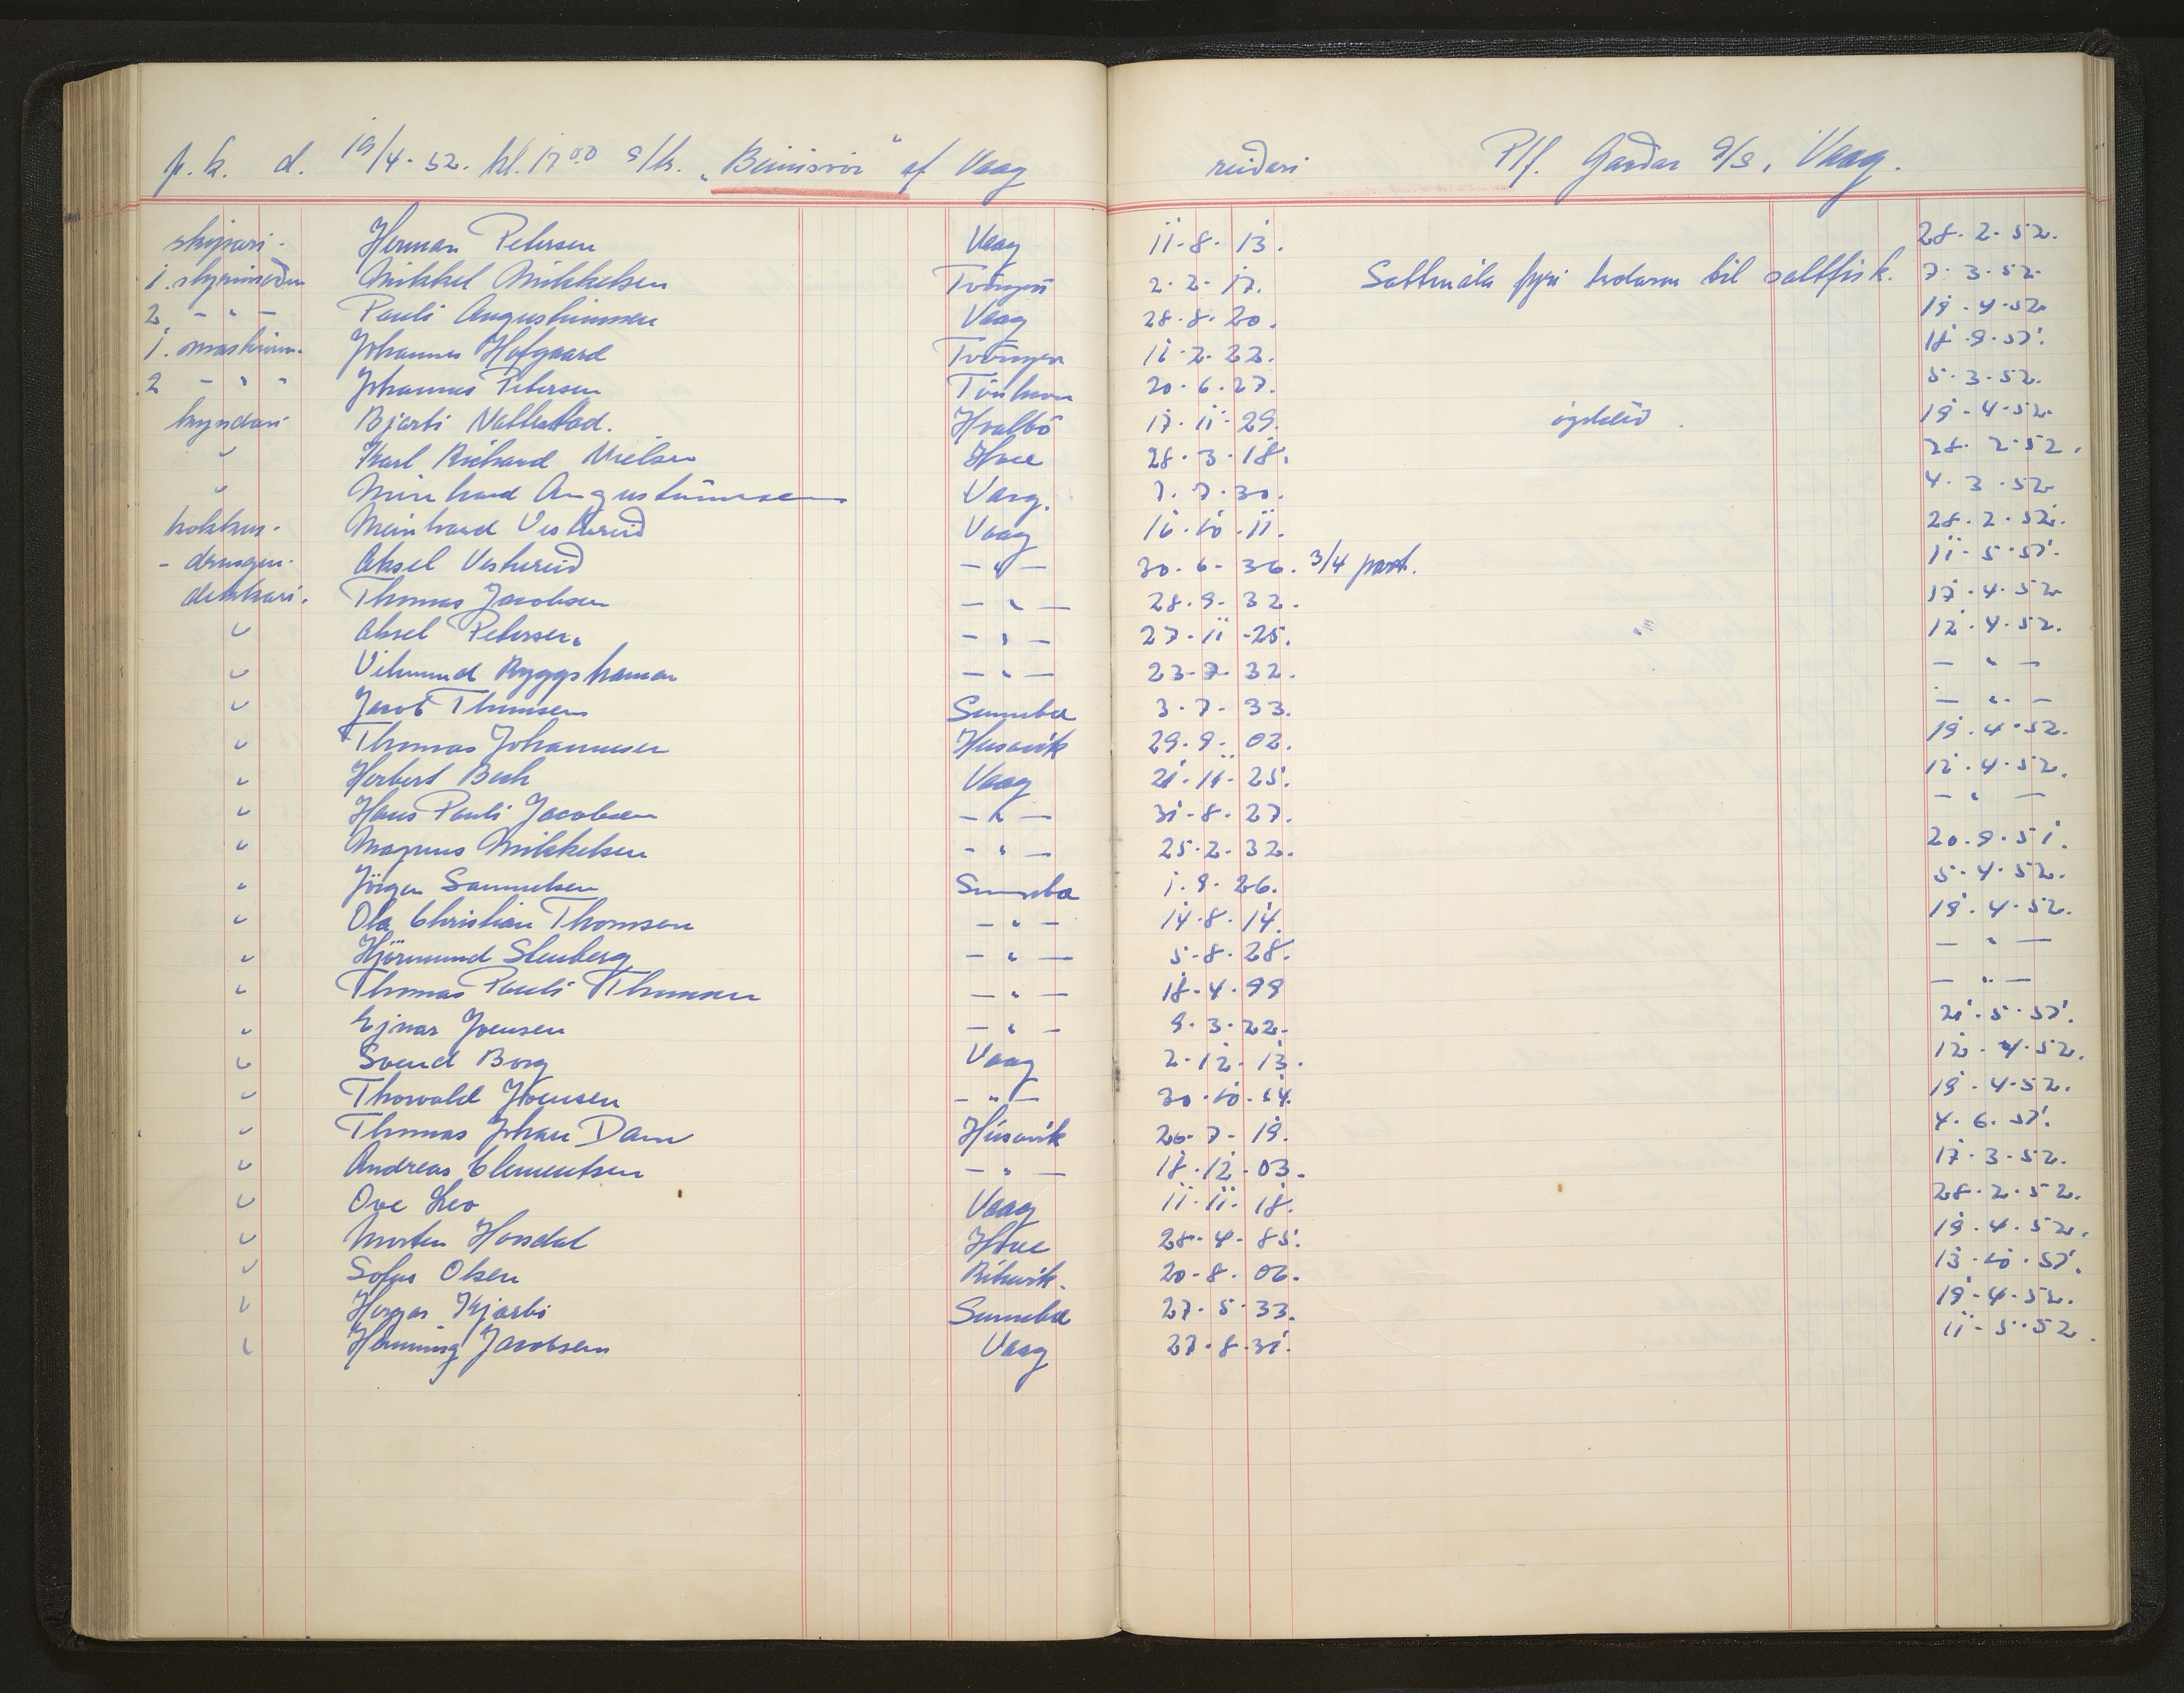 p.k. d. 19/4-52. kl. 17⁰⁰ s/tr. „Beinisvør“ af Vaag reiðari P/f. Garðar s/s, Vaag.
skipari. Herman Petersen Vaag 11-8-13. 28-2-52.
1. stýrimaðin Mikkel Mikkelsen Tvöroyri 2-2-17. Saltmála fyri trolaran til saltfisk. 7-3-52.
2. - " - Pauli Augustinussen Vaag 28-8-20. 19-4-52.
1. maskinm. Johannes Hofgaard Tvöroyri 11-2-22. 18-9-51.
2 - " - Johannes Petersen Tórshavn 20-6-27. 5-3-52.
kyndari Bjarti Nattestad. Hvalbö 17-11-29. 19-4-52.
" Karl Richard Nielsen Hove 28-3-18. 28-2-52.
" Meinhard Augustinussen Vaag. 7-7-30. 4-3-52.
kokkur. Meinhard Vestureið Vaag 16-10-11. 28-2-52.
- drongur. Aksel Vestureið - " - 30-6-36. 3/4 part. 11-5-51.
dekkari. Thomas Jacobsen - " - 28-9-32. 17-4-52
" Aksel Petersen. - " - 27-11-25. 12-4-52.
" Vilmund Ryggshamar - " - 23-7-32. - " -
" Jacob Thomsen Sumba 3-7-33. - " -
" Thomas Johannesen Husavik 29-9-02. 19-4-52.
" Herbert Bech Vaag 21-11-25. 12-4-52.
" Hans Pauli Jacobsen - " - 31-8-27. - " -
" Magnus Mikkelsen - " - 25-2-32. 20-9-51.
" Jörgen Samuelsen Sumba 1-9-26. 5-4-52.
" Ola Christian Thomsen - " - 14-8-14. 19-4-52.
" Hjörmund Stenberg - " - 5-8-28. - " -
" Thomas Pauli Thomsen - " - 18-4-99 - " -
" Ejnar Joensen - " - 9-3-22. 21-5-51.
" Svend Borg Vaag 2-12-13. 12-4-52.
" Thorvald Joensen - " - 30-10-14. 19-4-52.
" Thomas Johan Dam Húsavik 26-7-19. 4-6-51.
" Andreas Clementsen - " - 18-12-03. 17-3-52.
" Ove Leo Vaag 11-11-18. 28-2-52.
" Morten Hovdal Hove 28-4-85. 19-4-52.
" Sofus Olsen 20-8-06. 13-10-51.
" Kjærbo Sumba 27-5-33. 19-4-52.
" Henning Jacobsen Vaag 27-8-31. 11-5-52.